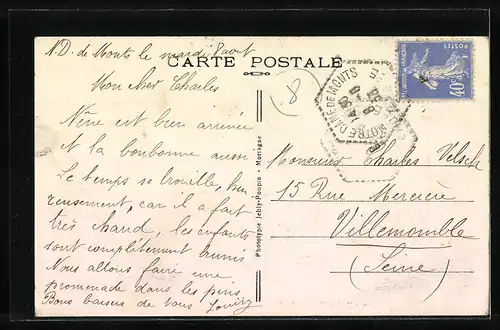 N.D. de Monts le mardi 8 aout
CARTE POSTALE
Mon cher Charles
(8)
Néné est bien arrivée
et la bonbonne aussi
Le temps se brouille, heu
reusement, car il a fait
très chaud, les enfants
sont complètement brunis
Nous allons faire une
promenade dans les pins
Bons baisers de tous
Phototypie Jehly-Poupin - Mortagne
POSTES
40c
NOTRE DAME DE MONTS
Monsieur Charles
15 Rue Mercière
Villemomble
(Seine)